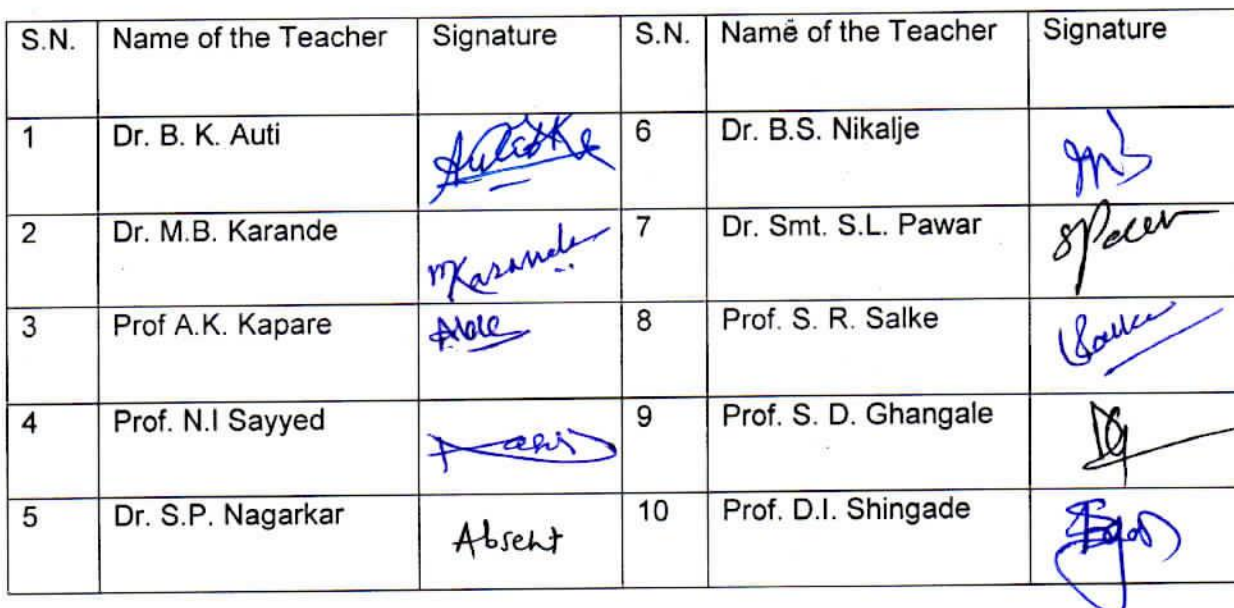 S.N. Name of the Teacher Signature S.N. Name of the Teacher Signature
1 Dr. B. K. Auti 6 Dr. B.S. Nikalje
2 Dr. M.B. Karande MKarande 7 Dr. Smt. S.L. Pawar
3 Prof A.K. Kapare 8 Prof. S. R. Salke Salke
4 Prof. N.I Sayyed 9 Prof. S. D. Ghangale
5 Dr. S.P. Nagarkar Absent 10 Prof. D.I. Shingade